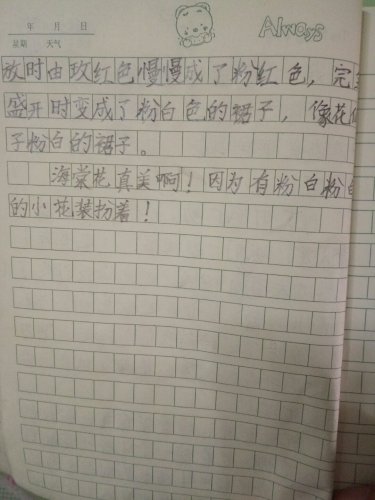 年 月 日
星期 天气
Always
放时由玫红色慢慢成了粉红色，完
盛开时变成了粉白色的裙子，像花
子粉白的裙子。
海棠花真美啊！因为有粉白粉
的小花装扮着！